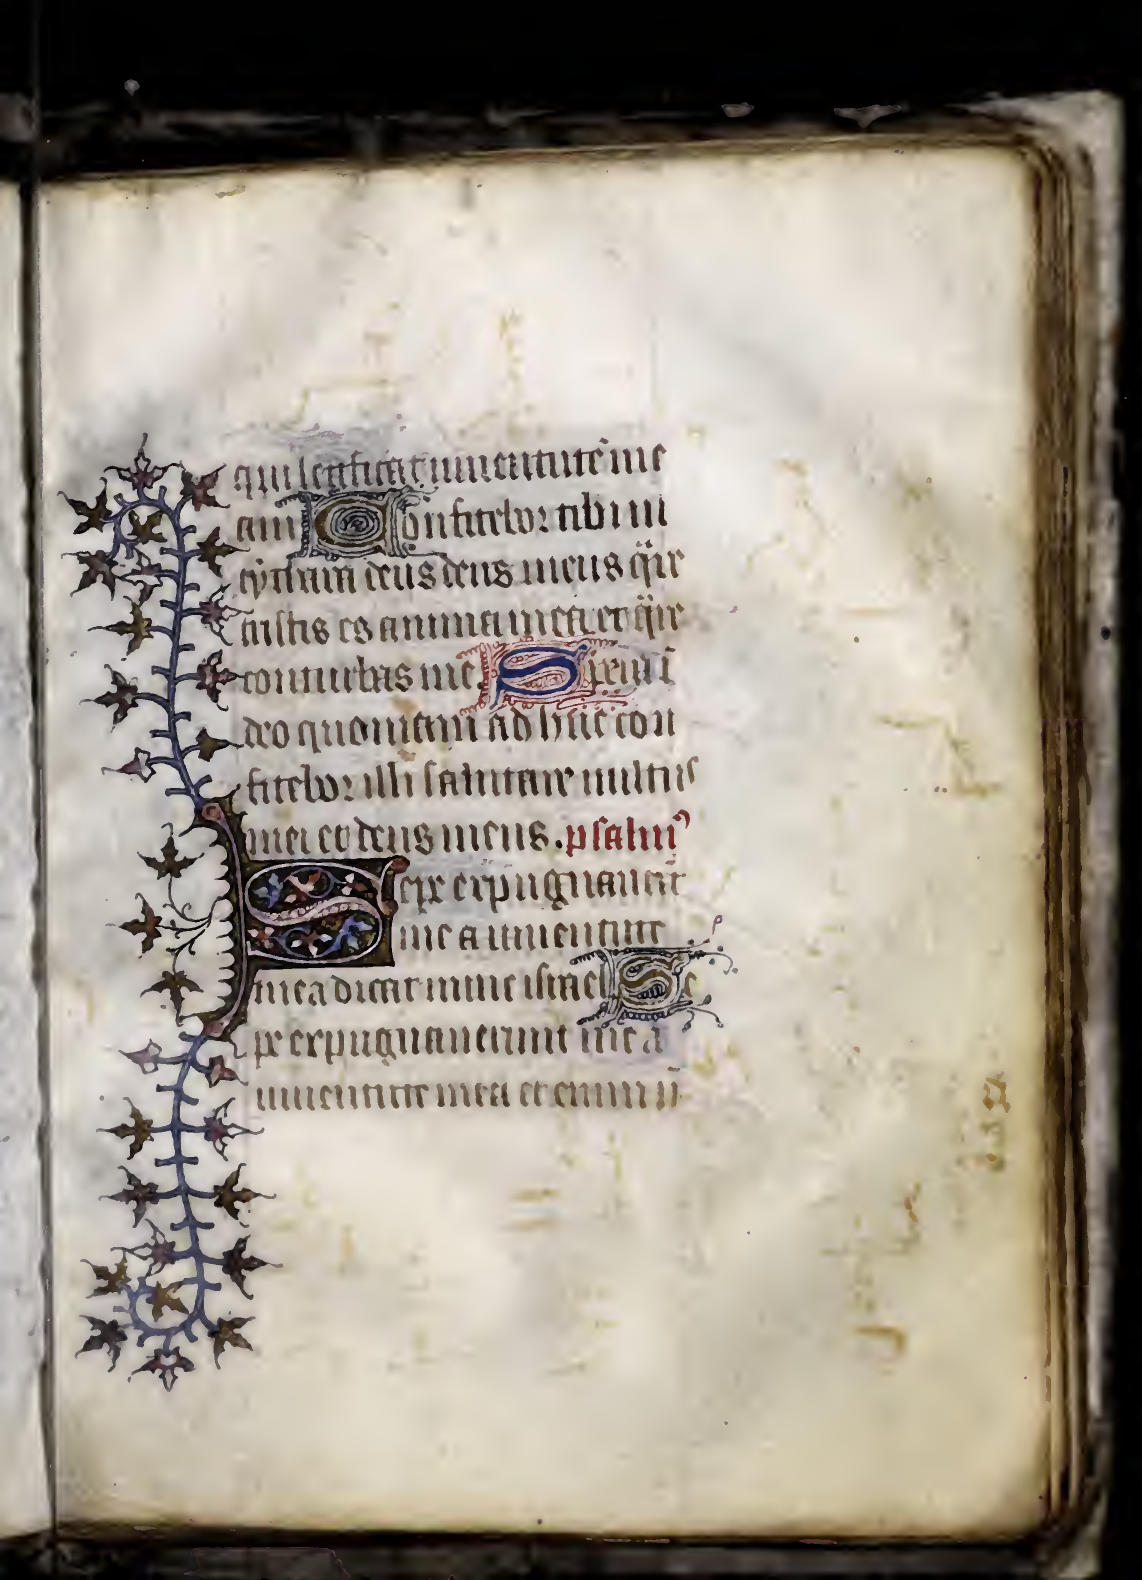 qui letificat iuuentutē me
am Confitebor tibi in
cythara deus deus meus q̄re
tristis es anima mea et q̄re
conturbas me Spera ī
deo quoniam ad huc con
fitebor illi salutare uultus
mei et deus meus. psalm᾿
Sepe expugnauerūt
me a iuuentute
mea dicat nunc israel Se
pe expugnauerunt me a
iuuentute mea etenim n̄